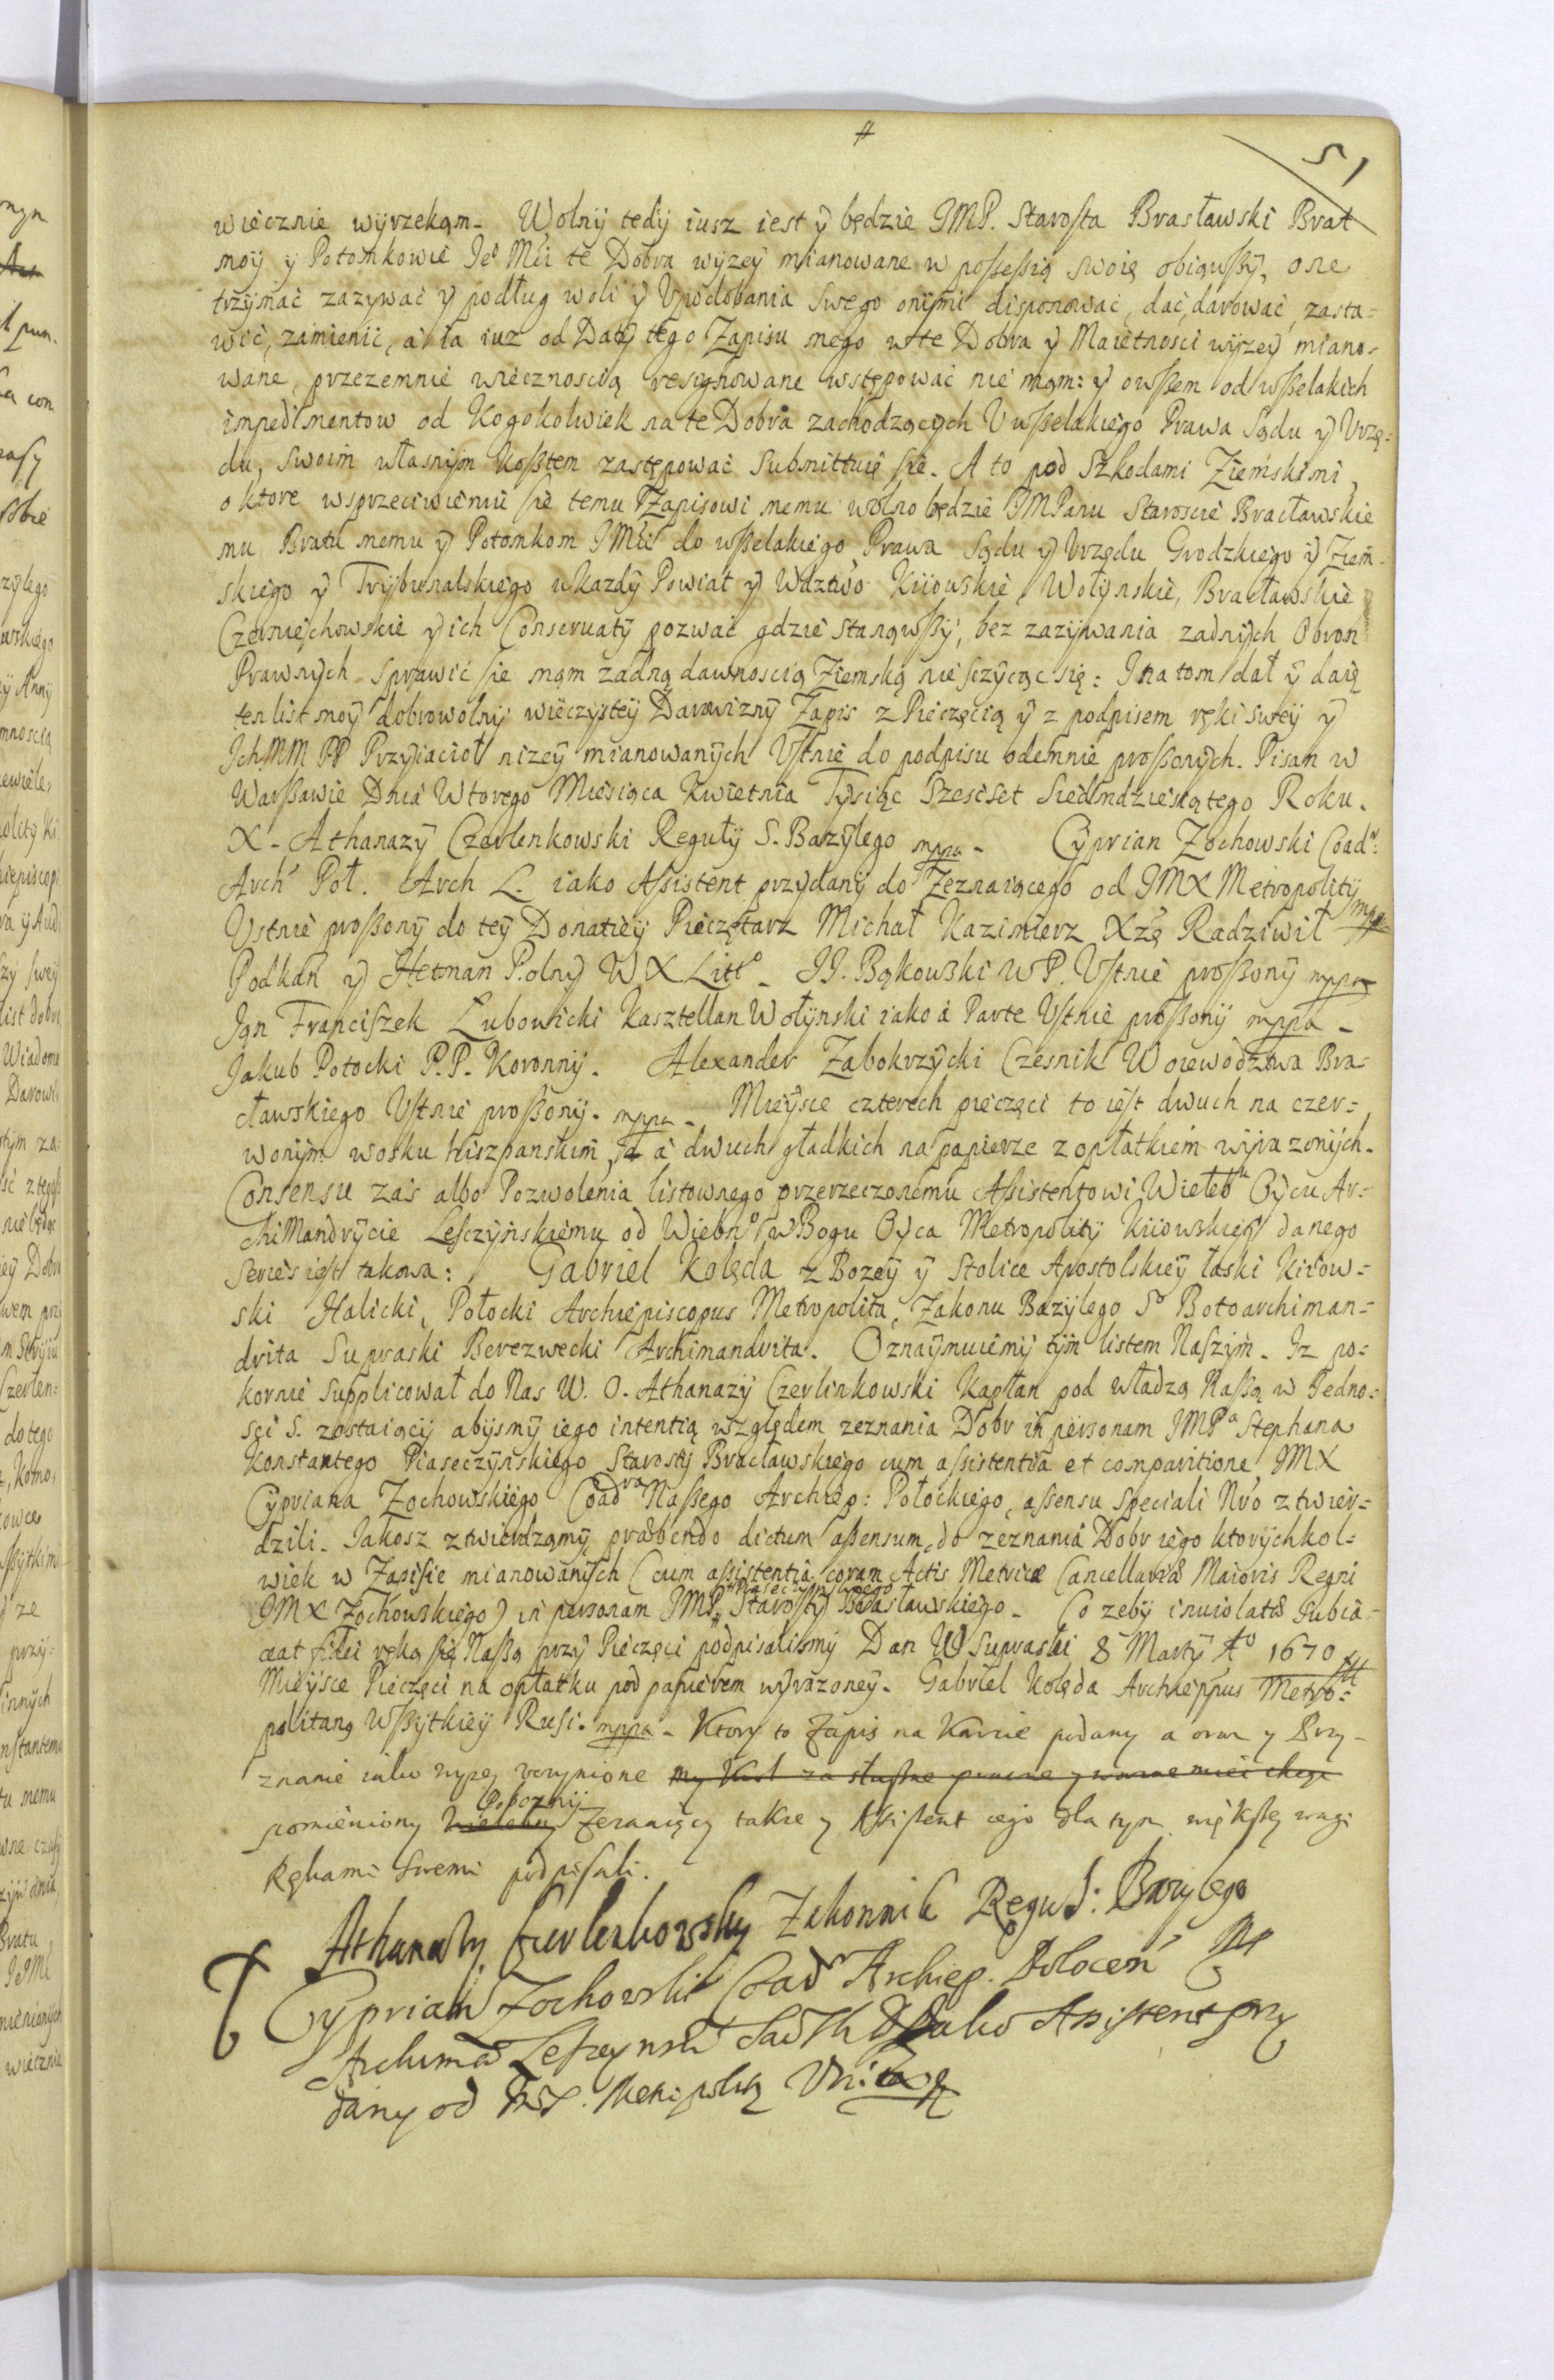 #
51
wiecznie wyrzekąm. Wolny tedy iusz iest y będzie JMP. Starosta Brasławski Brat
moy y Potomkowie Jeº Mći te Dobra wyzey mianowane w possessią swoię obiąwszy, one
trzymać zazywać y podług woli y Upodobania swego onymi disponować, dać, darować, zasta-
wić, zamienić, a ia iuz od Daty tego Zapisu mego w te Dobra y Maiętnosci wyzey miano-
wane, przezemnie wiecznoscią resignowane wstępować nie mąm: y owszem od wszelakich
impedimentow od kogokolwiek na te Dobra zachodzących U wszelakiego Prawa Sądu y Urzę-
du, swoim własnym kosztem zastępować submittuię się. A to pod Szkodami Ziemskimi,
o ktore w sprzeciwieniu się temu Zapisowi memu wolno będzie JMPanu Staroscie Bracławskie
mu Bratu memu y Potomkom JMći do wszelakiego Prawa Sądu y Urzędu Grodzkiego y Ziem-
skiego y Trybunalskiego w kazdy Powiat y Wdztwo Kiiowskie, Wołynskie, Bracławskie
Czerniechowskie y ich Conservaty pozwać gdzie stanąwszy, bez zazywania zadnych Obron
Prawnych sprawić się mąm zadną dawnoscią Ziemską nie sczycąc się: I na tom dał y daię
ten list moy dobrowolny wieczystey Darowizny Zapis z Pieczęcią y z podpisem ręki swey y
Ich MM PP Przyiacioł nizey mianowanych Ustnie do podpisu odemnie proszonych. Pisan w
Warszawie Dnia Wtorego Miesiąca Kwietnia Tysiąc Szescset Siedmdziesiątego Roku.
X. Athanazy Czerlenkowski Reguły S. Bazylego mppa. Cyprian Zochowski Coadr:
Arch Poł. Arch L. iako Assistent przydany do Zeznaiącego od JMX Metropolity mppa
Ustnie proszony do tey Donatiey Pieczętarz Michał Kazimierz Xżę Radziwił
Podkan y Hetman Polny W X Littº. JJ. Bąkowski WP. Ustnie proszony mppa
Jan Franciszek Lubowicki Kasztellan Wołynski iako a Parte Ustnie proszony mppa.
Jakub Potocki P.P. Koronny. Alexander Zabokrzycki Czesnik Woiewodztwa Bra-
cławskiego Ustnie proszony. mppa. Mieysce czterech pieczęci to iest dwuch na czer-
wonym wosku Hiszpanskim, a dwuch gładkich na papierze z opłatkiem wyrazonych.
Consensu zas albo Pozwolenia listownego przerzeczonemu Assistentowi Wieleb. Oycu Ar-
chiMandrycie Lesczyńskiemu od Wiebnº w Bogu Oyca Metropolity Kiiowskieº danego
Series iest takowa: Gabriel Kolęda z Bozey y Stolice Apostolskiey łaski Kiiow-
ski Halicki, Połocki Archiepiscopus Metropolita, Zakonu Bazylego Sº Botoarchiman-
drita Supraski Berezwecki Archimandrita. Oznaymuiemy tym listem Naszym. Iz po-
kornie supplicował do Nas W. O. Athanazy Czerlinkowski Kapłan pod władzą Naszą w Jedno-
sci S. zostaiący abysmy iego intentią względem zeznania Dobr in personam JMPª Stephana
Konstantego Piaseczynskiego Starosty Bracławskiego cum assistentia et comparitione JMX
Cypriana Zochowskiego Coadra Naszego Archiep: Połockiego, assensu speciali Nro ztwier-
dzili. Jakosz ztwierdzamy, præbendo dictum assensum, do zeznania Dobr iego ktorychkol-
wiek w Zapisie mianowanych (cum assistentia coram Actis Metricæ Cancellariæ Maioris Regni
JMX Zochowskiego) in personam JMP Piaseczynskiego Starosty Brasławskiego. Co zeby inuiolatæ subia-
ceat fidei ręką się Naszą przy Pieczęci podpisalismy Dan W Supraslu 8 Marty Aº 1670
Mieysce Pieczęci na opłatku pod papierem wyrazoney. Gabriel Kolęda Archieppus Metro-
politang Wszytkiey Rusi. mppa. Ktory to Zapis na Karcie podany a oraz y Przy-
znanie iako wyzey uczynione
pomieniony Pobozny Zeznaiący takze y Assistent iego dla tym większey wagi
Rękami swemi podpisali.
Athanazy Czerlenkowsky Zakonnik Reguł S: Bazylego
Cyprian Zochowski Coadr Archiep. Polocen
Archimad Lesczynski Jako Assistent przy
dany od Metropolity